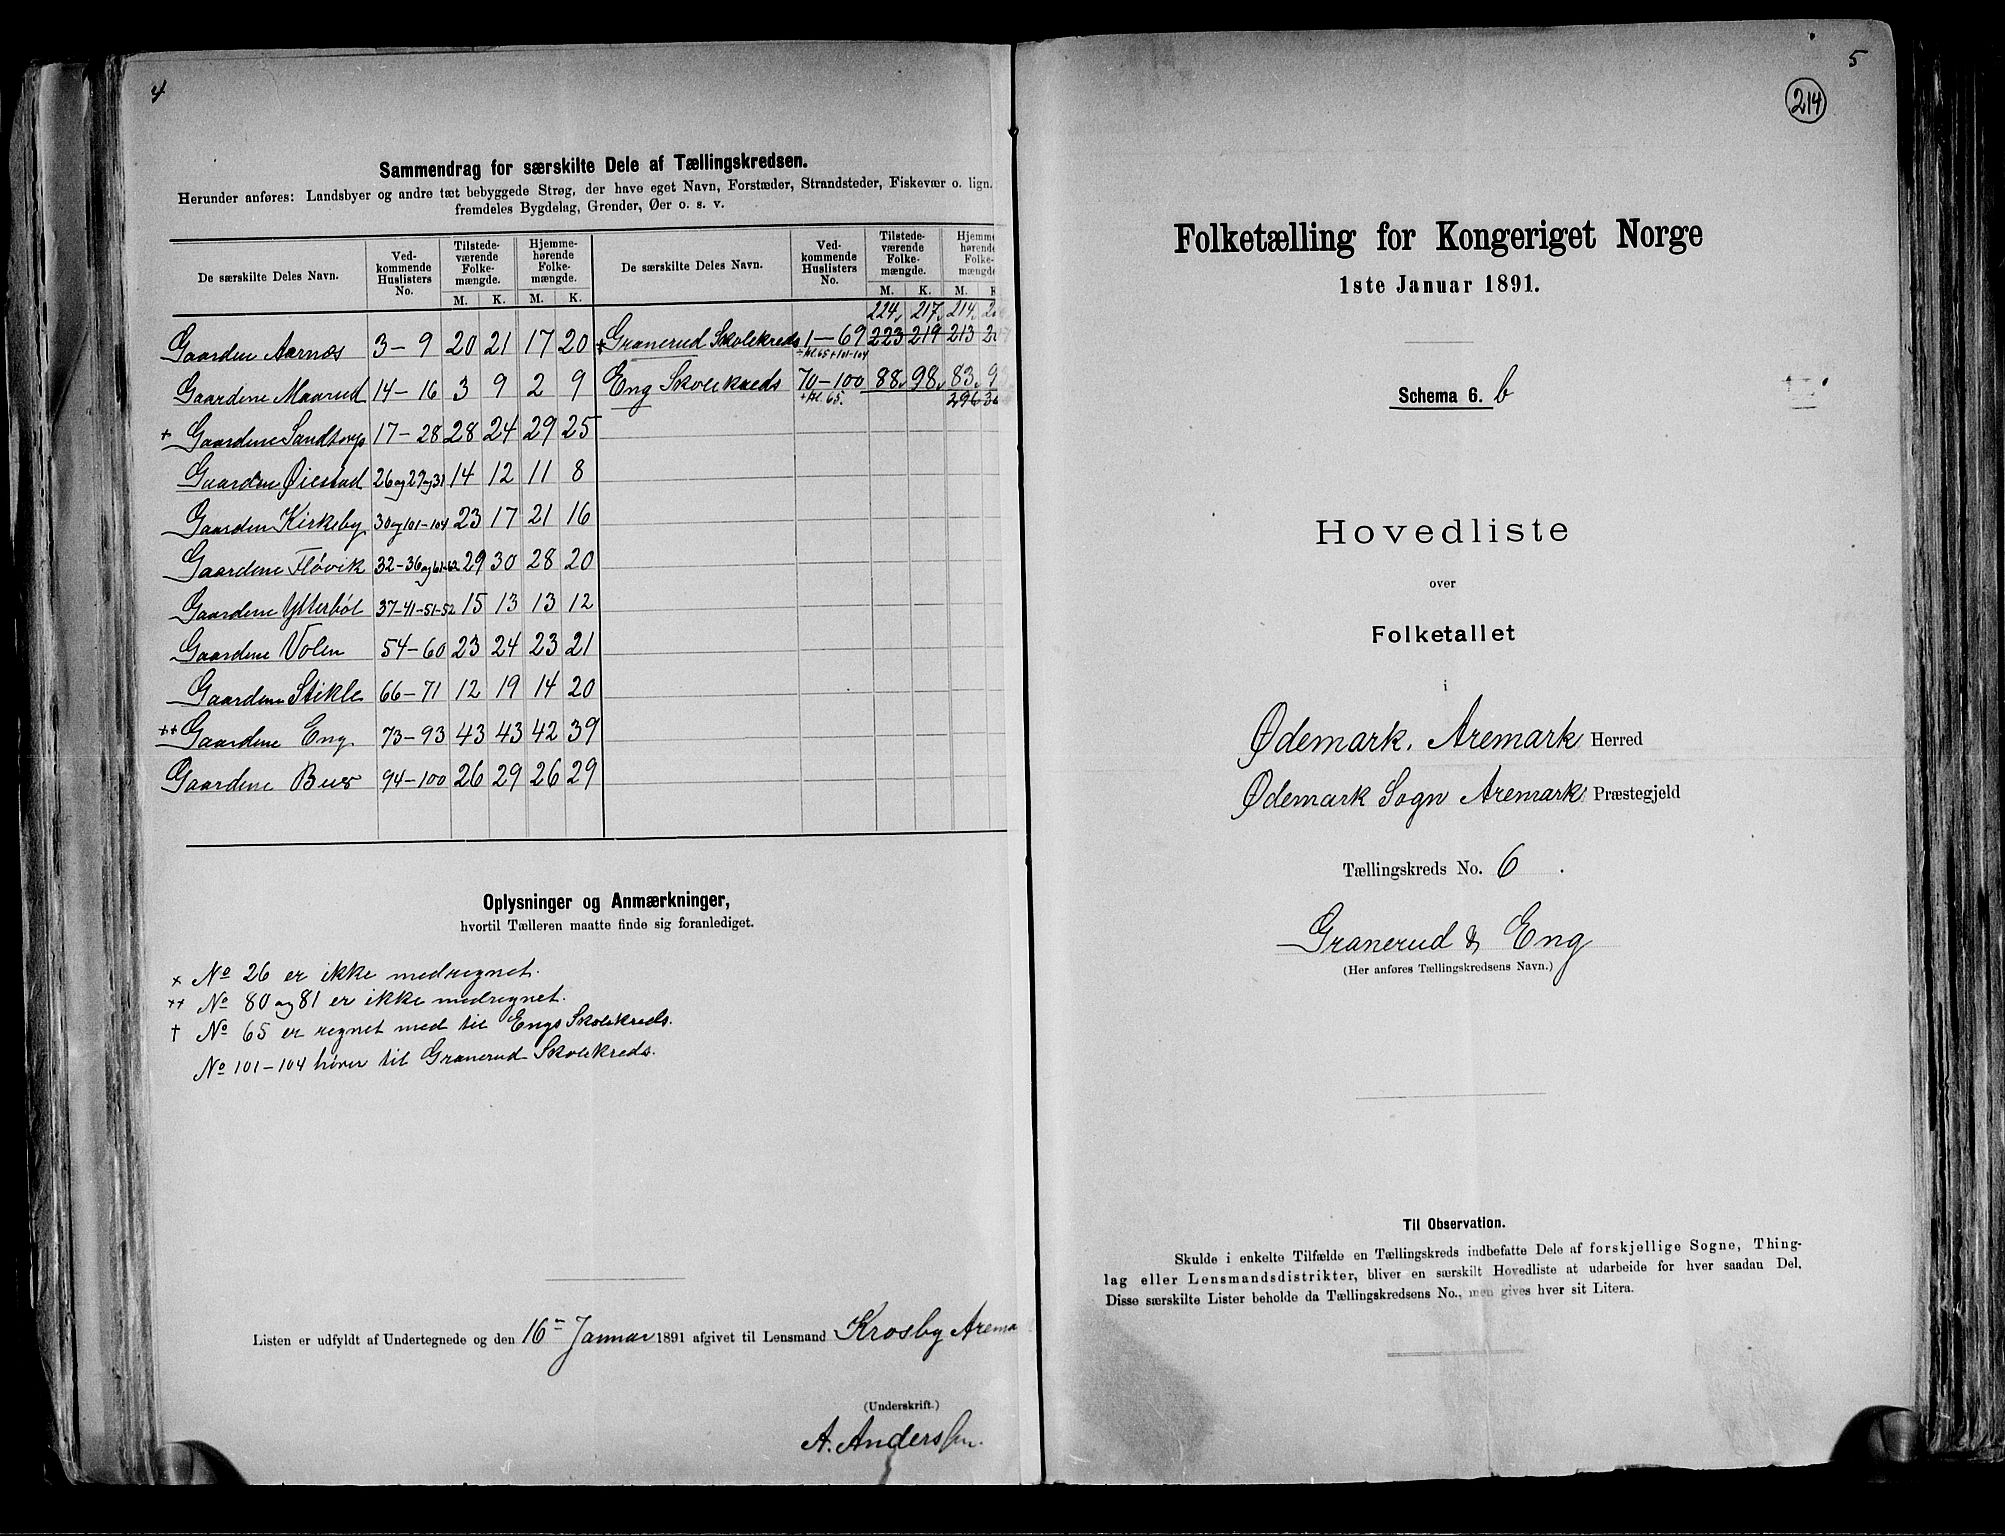 4
Sammendrag for særskilte Dele af Tællingskredsen.
Herunder anføres: Landsbyer og andre tæt bebyggede Strøg, der have eget Navn, Forstæder, Strandsteder, Fiskevær o. lign.
fremdeles Bygdelag, Grender, Øer o. s. v.
De særskilte Deles Navn. Ved-kommende Huslisters No. Tilstede-værende Folke-mængde. Hjemme-hørende Folke-mængde. De særskilte Deles Navn. Ved-kommende Huslisters No. Tilstede-værende Folke-mængde. Hjemme hørende Folke-mængde
M. K. M. K. M. K. M. K
224, 217, 214,
Gaarden Aarnæs 3-9 20 21 17 20 Granerud Skolekreds 1-69 223 219 213
÷ Nl. 65 + 101-104
Gaardene Maarud 14-16 3 9 2 9 Eng Skolekreds 70-100 88, 98, 83,
+ Nl. 65. 296
+ Gaardene Sandtorp 17-28 28 24 29 25
Gaardene Øiestad 26 og 29 og 31 14 12 11 8
Gaarden Kirkeby 30 og 101-104 23 17 21 16
Gaardene Fløvik 32-36 og 61-62 29 30 28 20
Gaardene Ytterbøl 37-41-51-52 15 13 13 12
Gaardene Volen 54-60 23 24 23 21
Gaardene Stikle 66-71 12 19 14 20
++ Gaardene Eng 73-93 43 43 42 39
Gaardene Buer 94-100 26 29 26 29
Oplysninger og Anmærkninger,
hvortil Tælleren maatte finde sig foranlediget.
× No 26 er ikke medregnet.
++ No 80 og 81 er ikke medregnet.
† No 65 er regnet med til Engs Skolekreds.
No 101-104 hører til Granerud Skolekreds.
Listen er udfyldt af Undertegnede og den 16 Januar 1891 afgivet til Lensmand Krosby Arema
(Underskrift.)
A. Anderssen.
5
214
Folketælling for Kongeriget Norge
1ste Januar 1891.
Schema 6. b
Hovedliste
over
Folketallet
i
Ødemark, Aremark Herred
Ødemark Sogn Aremark Præstegjeld
Tællingskreds No. 6.
Granerud & Eng
(Her anføres Tællingskredsens Navn.)
Til Observation.
Skulde i enkelte Tilfælde en Tællingskreds indbefatte Dele af forskjellige Sogne, Thing-
lag eller Lensmandsdistrikter, bliver en særskilt Hovedliste at udarbeide for hver saadan Del.
Disse særskilte Lister beholde da Tællingskredsens No., men gives hver sit Litera.